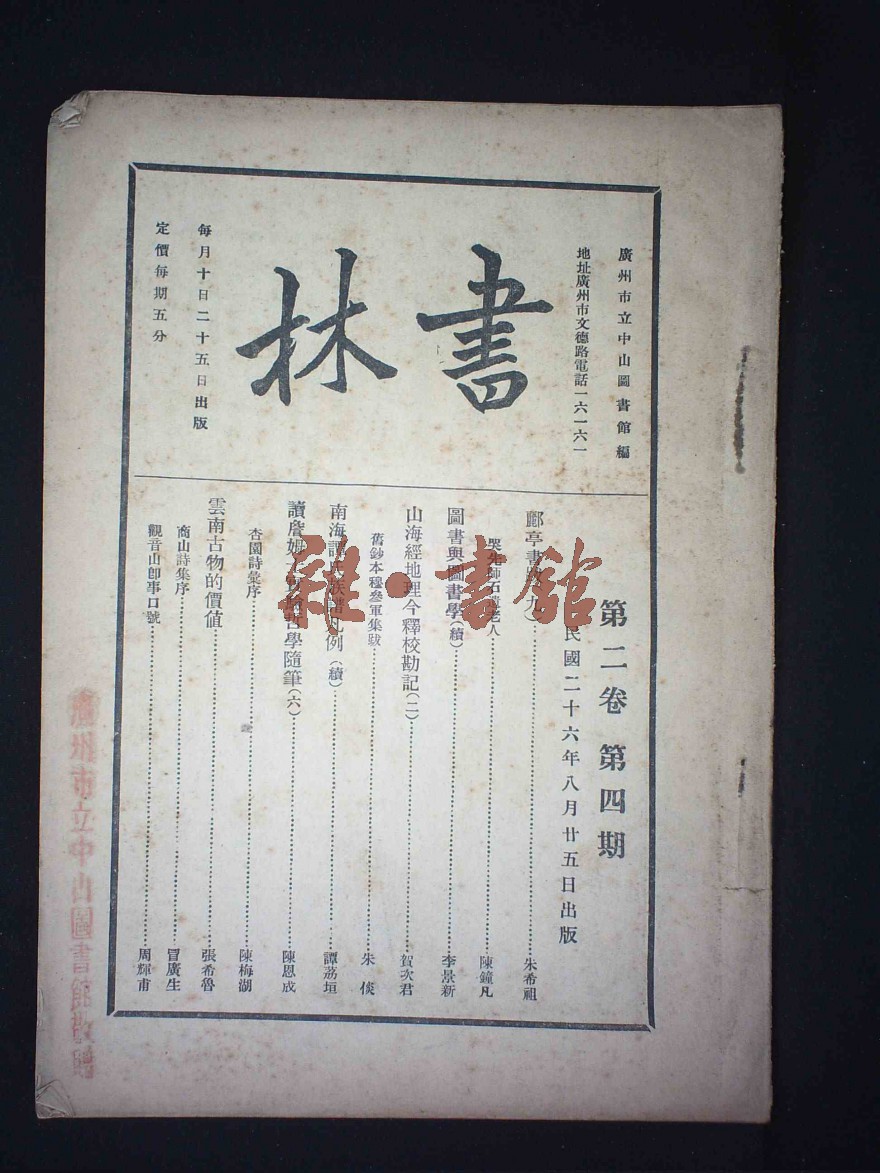 廣州市立中山圖書館編
地址廣州市文德路電話一六一六一
書林
每月十日二十五日出版
定價每期五分
第二卷 第四期
民國二十六年八月廿五日出版
酈亭書 (九) 朱希祖
哭先師石遺老人 陳鐘凡
圖書與圖書學(續) 李景新
山海經地理今釋校勘記(二) 賀次君
舊鈔本穆參軍集跋 朱倓
南海譚氏族譜凡例(續) 譚荔垣
讀詹姆 哲學隨筆(六) 陳恩成
杏園詩彙序 陳梅湖
雲南古物的價值 張希魯
商山詩集序 冒廣生
觀音山卽事口號 周輝甫
雜·書館
廣州市立中山圖書館敬贈